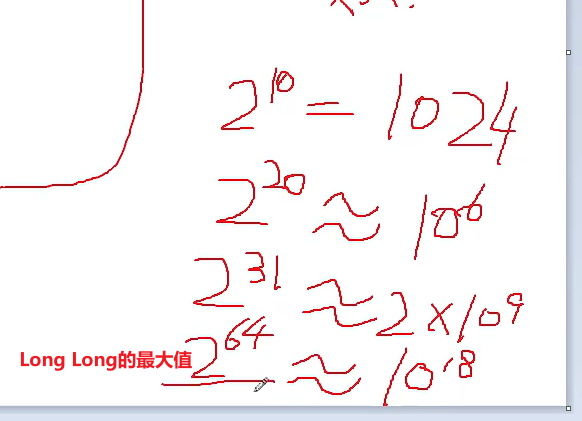 2^10 = 1024
2^20 ≈ 10^6
2^31 ≈ 2 × 10^9
Long Long的最大值 2^64 ≈ 10^18